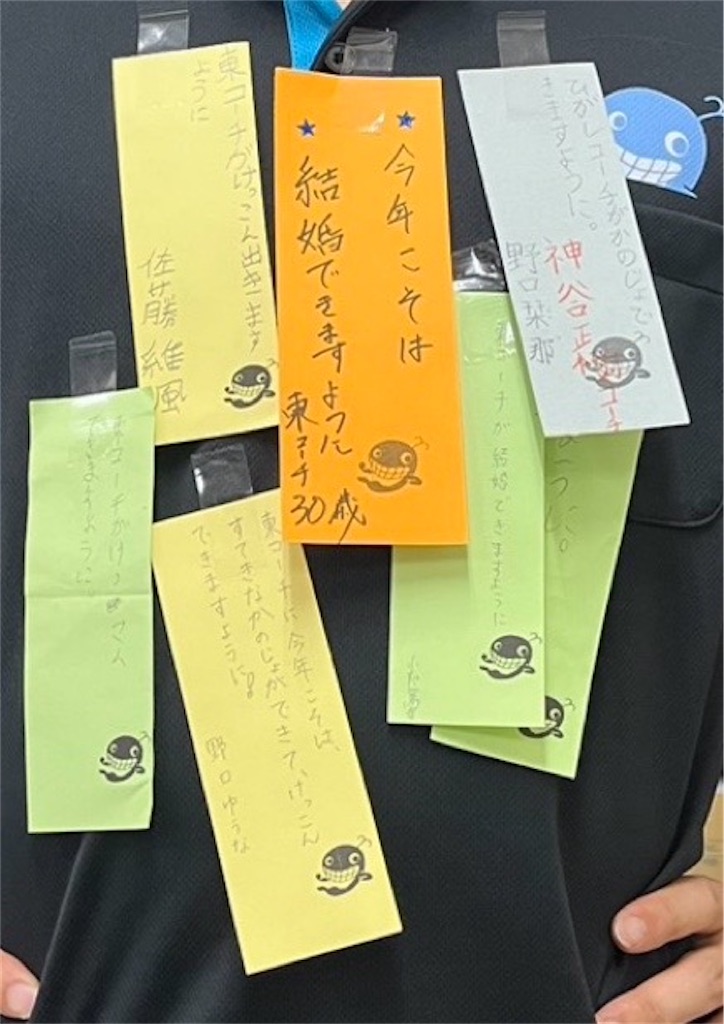 東コーチがけっこん出きます
ように
佐藤維颯
今年こそは
結婚できますように
東コーチ
30歳
ひがしコーチがかのじょがで
きますように。
野口栞那
神谷正
コーチ
コーチが結婚できますように
ように。
東コーチがけっこんさん
できますように。
東コーチに今年こそは、
すてきなかのじょができて、けっこん
できますように。
野口ゆうな